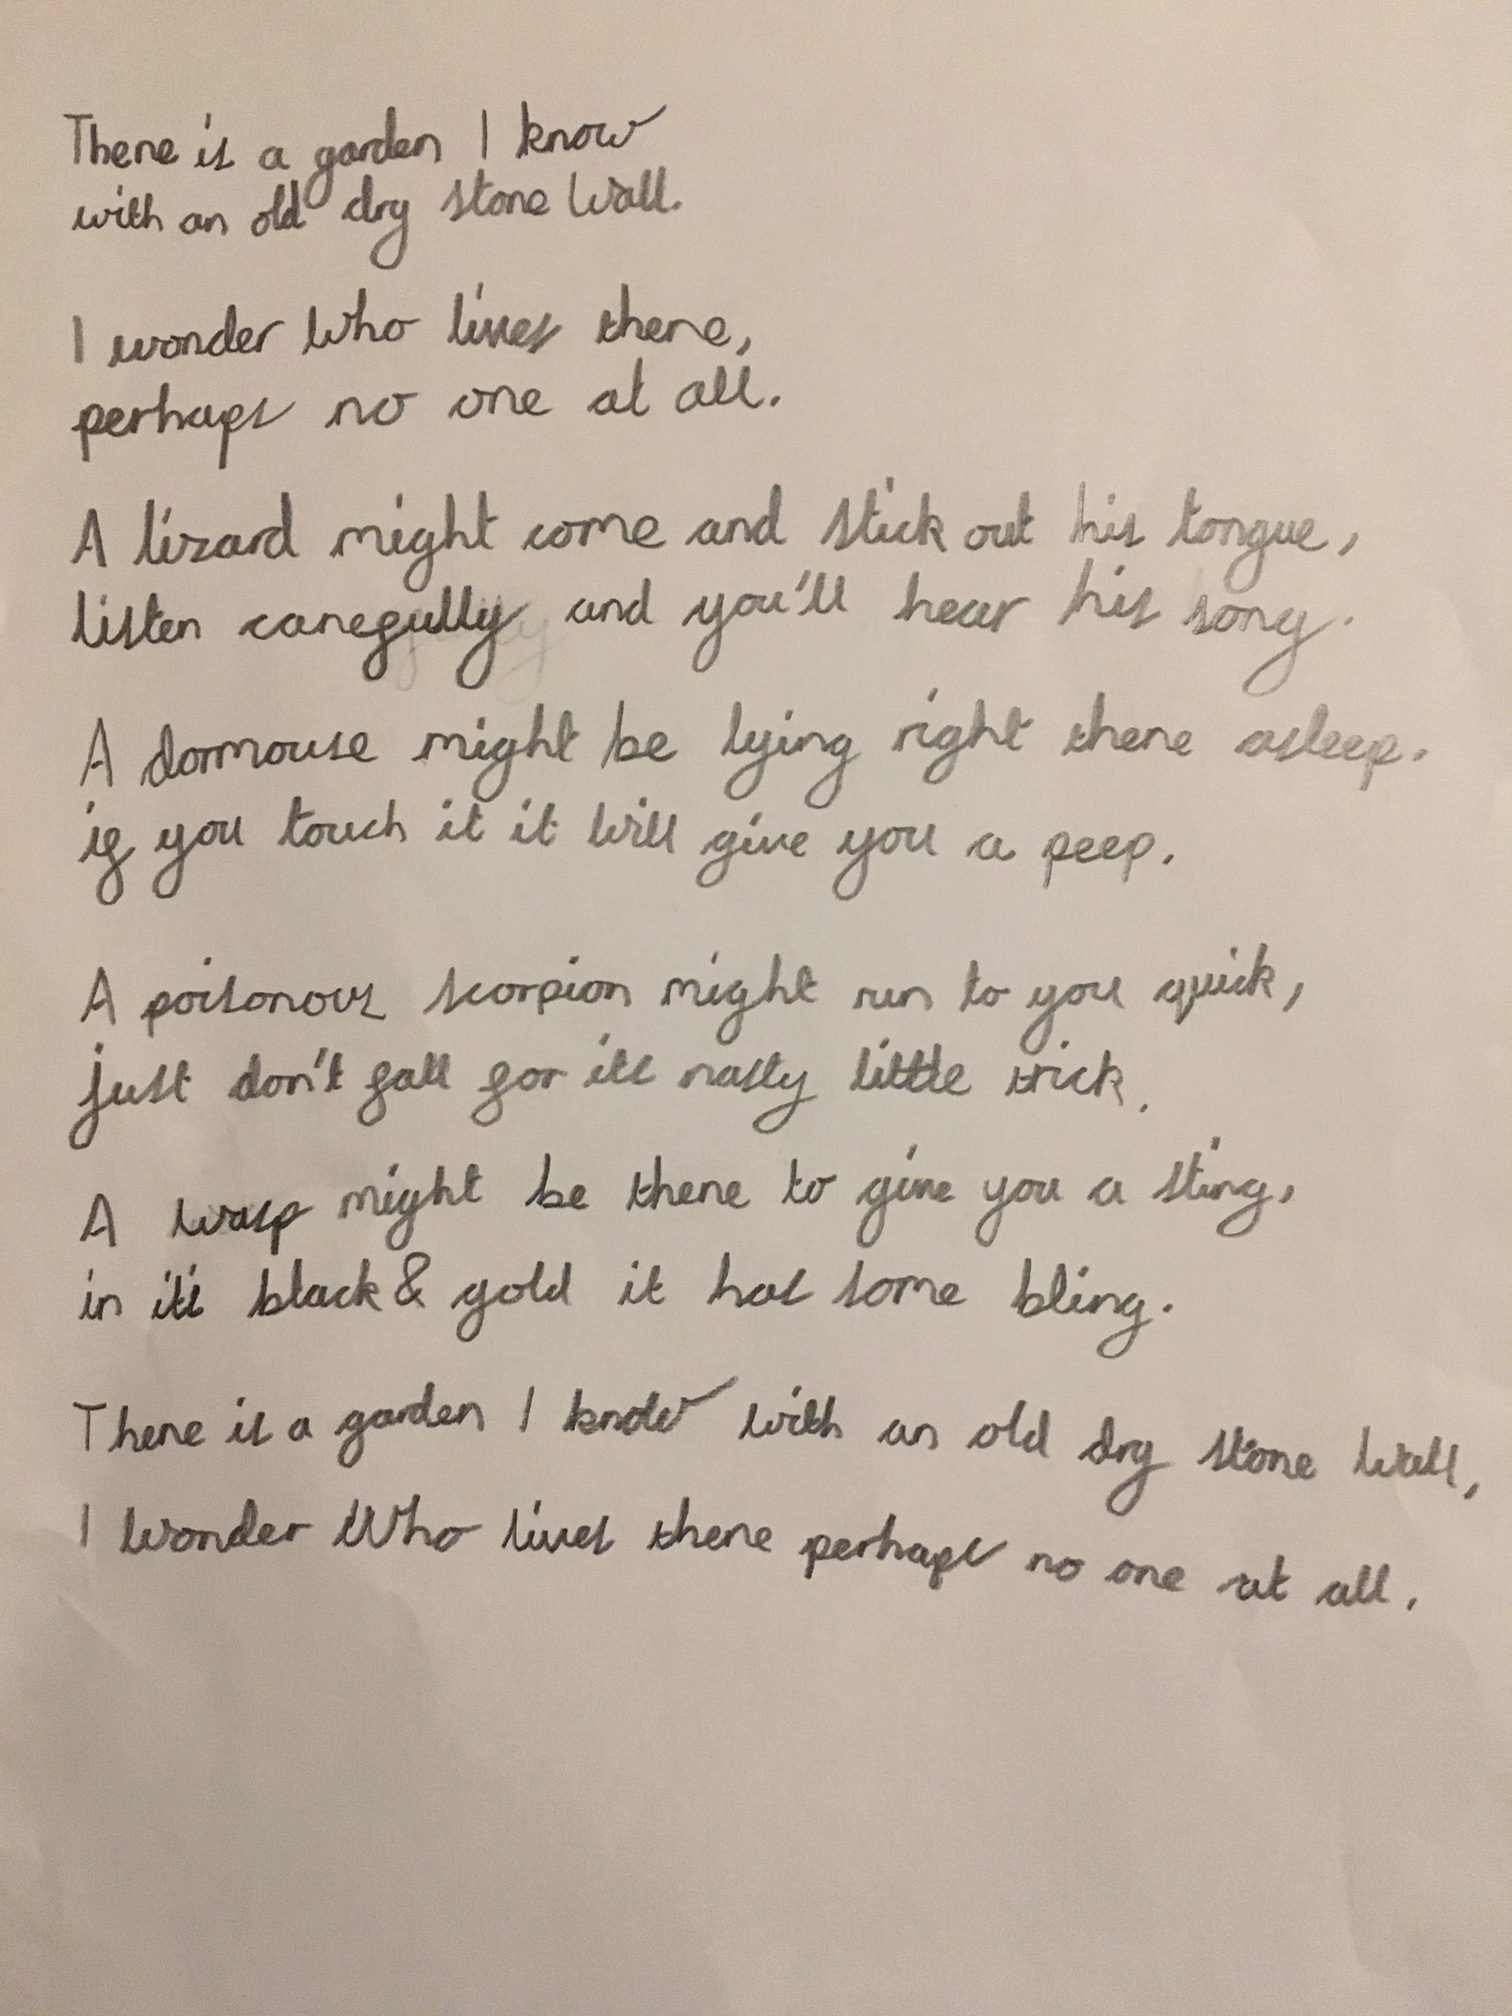 There is a garden I know
with an old dry stone wall.
I wonder who lives there,
perhaps no one at all.
A lizard might come and stick out his tongue,
listen carefully and you'll hear his song.
A dormouse might be lying right there asleep.
if you touch it it will give you a peep.
A poisonous scorpion might run to you quick,
just don't fall for its nasty little trick.
A wasp might be there to give you a sting,
in it's black & gold it has some bling.
There is a garden I know with an old dry stone wall,
I wonder who lives there perhaps no one at all.